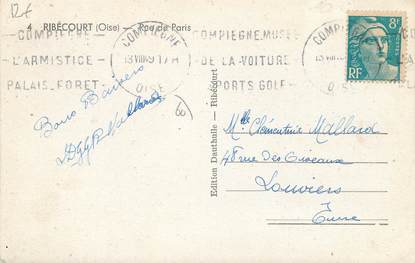 12€
4 RIBÉCOURT (Oise) — Rue de Paris
COMPIÈGNE
L'ARMISTICE
PALAIS FORET
COMPIEGNE
13 VIII 49
OISE
COMPIEGNE, MUSEE
DE LA VOITURE
SPORTS GOLF
8F
RF
Bons Baisers
Edition Dauthuile - Ribécourt
Mlle Clémentine Mallard
48 rue Des Oiseaux
Louviers
Eure